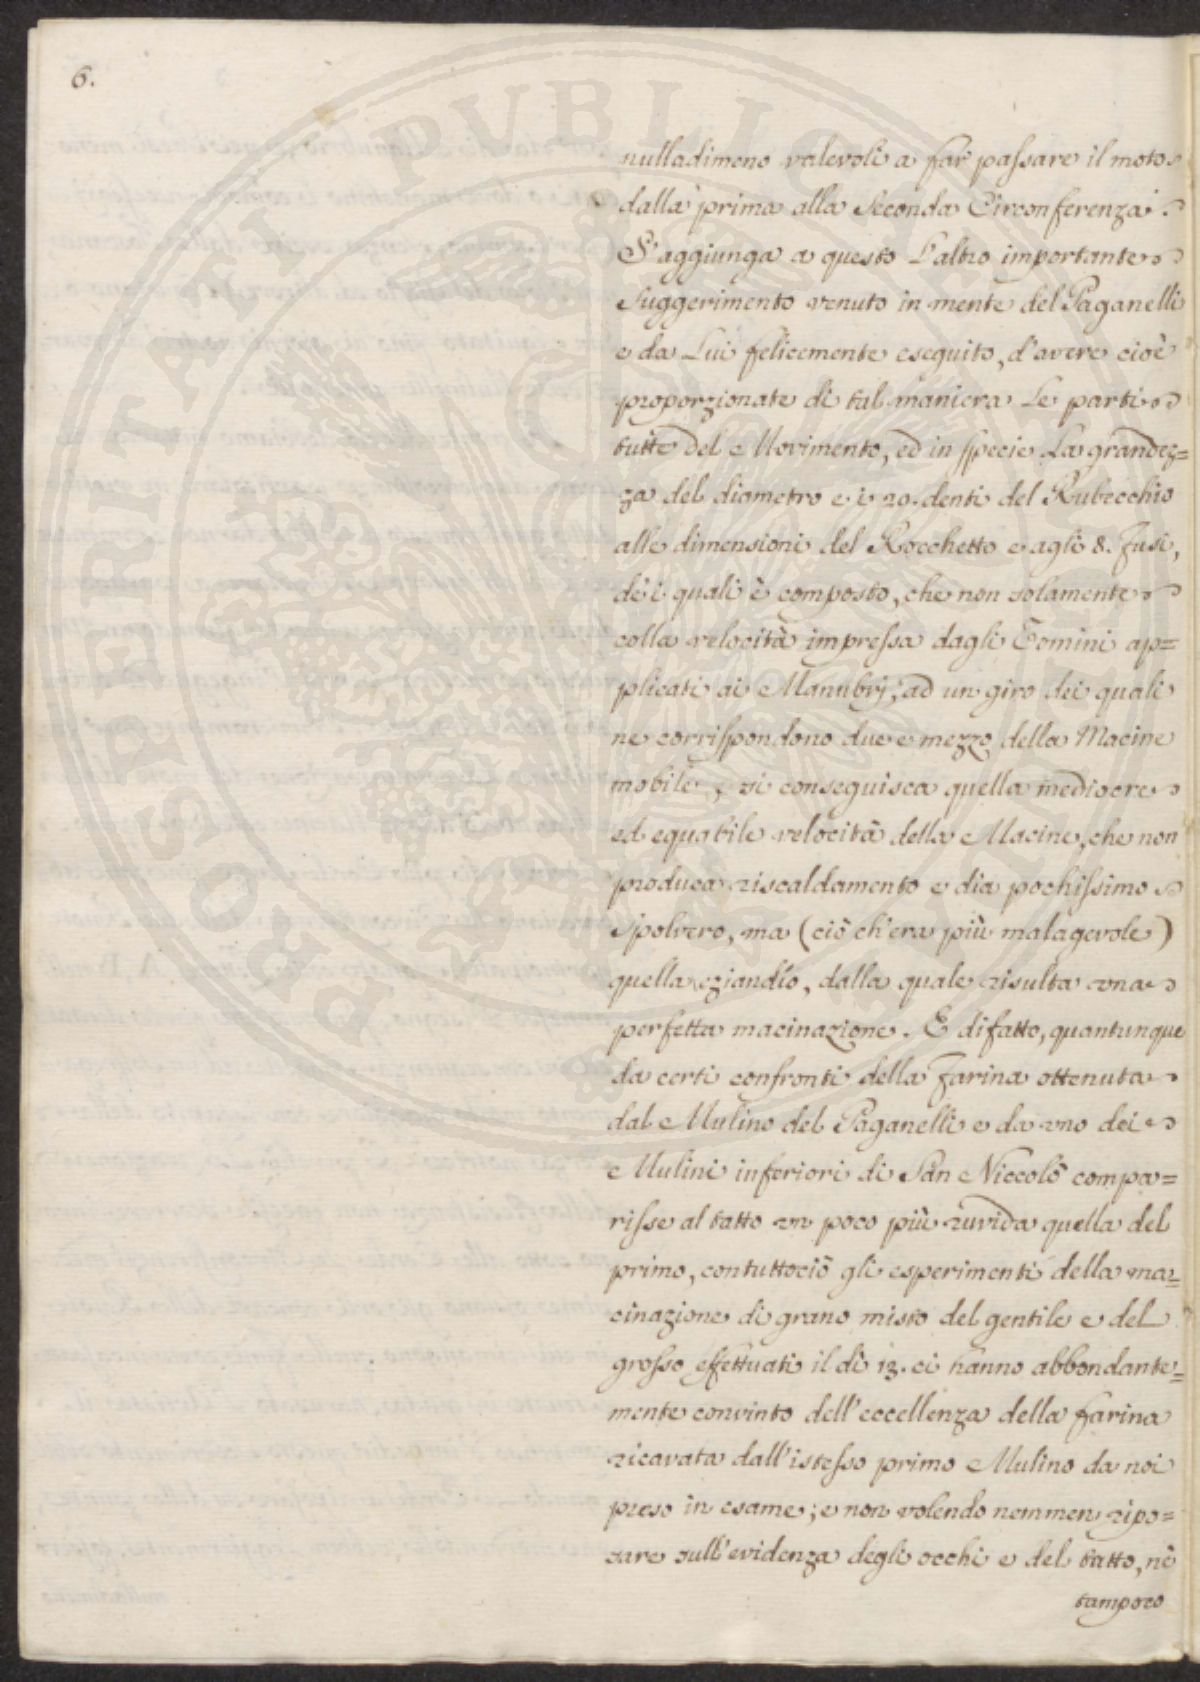 6.
nulladimeno valevoli a far passare il moto
dalla prima alla Seconda Circonferenza.
S'aggiunga a questo L'altro importante
Suggerimento venuto in mente del Paganelli
e da Lui felicemente eseguito, d'avere cioè
proporzionate di tal maniera Le parti
tutte del Movimento, ed in specie La grandez=
za del diametro e i 20. denti del Rubecchio
alle dimensioni del Rocchetto e agli 8. Fusi,
dei quali è composto, che non solamente
colla velocità impressa dagli Uomini ap=
plicati ai Manubrj, ad un giro dei quali
ne corrispondono due e mezzo della Macine
mobile, si conseguisca quella mediocre
ed equabile velocità della Macine, che non
produca riscaldamento e dia pochissimo
Spolvero, ma (ciò ch'era più malagevole)
quella eziandio, dalla quale risulta una
perfetta macinazione. E difatto, quantunque
da certi confronti della Farina ottenuta
dal Mulino del Paganelli e da uno dei
Mulini inferiori di San Niccolò compa=
risse al tatto un poco più ruvida quella del
primo, contuttociò gli esperimenti della ma=
cinazione di grano misto del gentile e del
grosso effettuati il dì 13. ci hanno abbondante=
mente convinto dell'eccellenza della farina
ricavata dall'istesso primo Mulino da noi
preso in esame; e non volendo nemmen ripo=
sare sull'evidenza degli occhi e del tatto, nè
tampoco
PROSPERITATI PUBLICAE